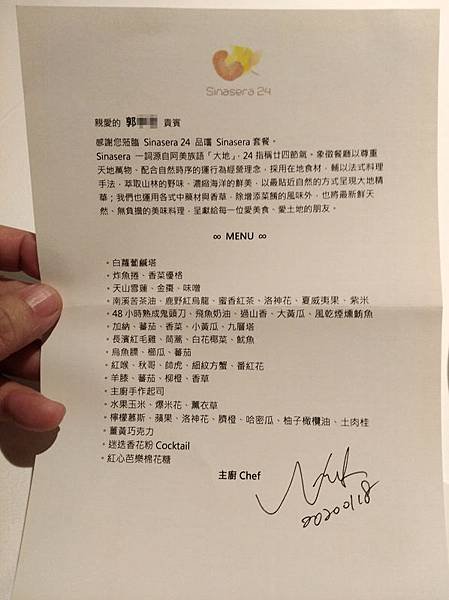 Sinasera 24
親愛的 郭 貴賓
感謝您蒞臨 Sinasera 24 品嚐 Sinasera 套餐。
Sinasera 一詞源自阿美族語「大地」，24 指稱廿四節氣。象徵餐廳以尊重
天地萬物、配合自然時序的運行為經營理念，採用在地食材，輔以法式料理
手法，萃取山林的野味、濃縮海洋的鮮美，以最貼近自然的方式呈現大地精
華；我們也運用各式中藥材與香草，除增添菜餚的風味外，也將最新鮮天
然、無負擔的美味料理，呈獻給每一位愛美食、愛土地的朋友。
∞ MENU ∞
。白蘿蔔鹹塔
。炸魚捲、香菜優格
。天山雪蓮、金棗、味噌
。南溪苦茶油、鹿野紅烏龍、蜜香紅茶、洛神花、夏威夷果、紫米
。48 小時熟成鬼頭刀、飛魚奶油、過山香、大黃瓜、風乾煙燻鮪魚
。加納、蕃茄、香菜、小黃瓜、九層塔
。長濱紅毛雞、茼蒿、白花椰菜、魷魚
。烏魚膘、櫛瓜、蕃茄
。紅喉、秋哥、帥虎、細紋方蟹、番紅花
。羊膝、蕃茄、柳橙、香草
。主廚手作起司
。水果玉米、爆米花、薰衣草
。檸檬慕斯、蘋果、洛神花、臍橙、哈密瓜、柚子橄欖油、土肉桂
。薑黃巧克力
。迷迭香花粉 Cocktail
。紅心芭樂棉花糖
主廚 Chef